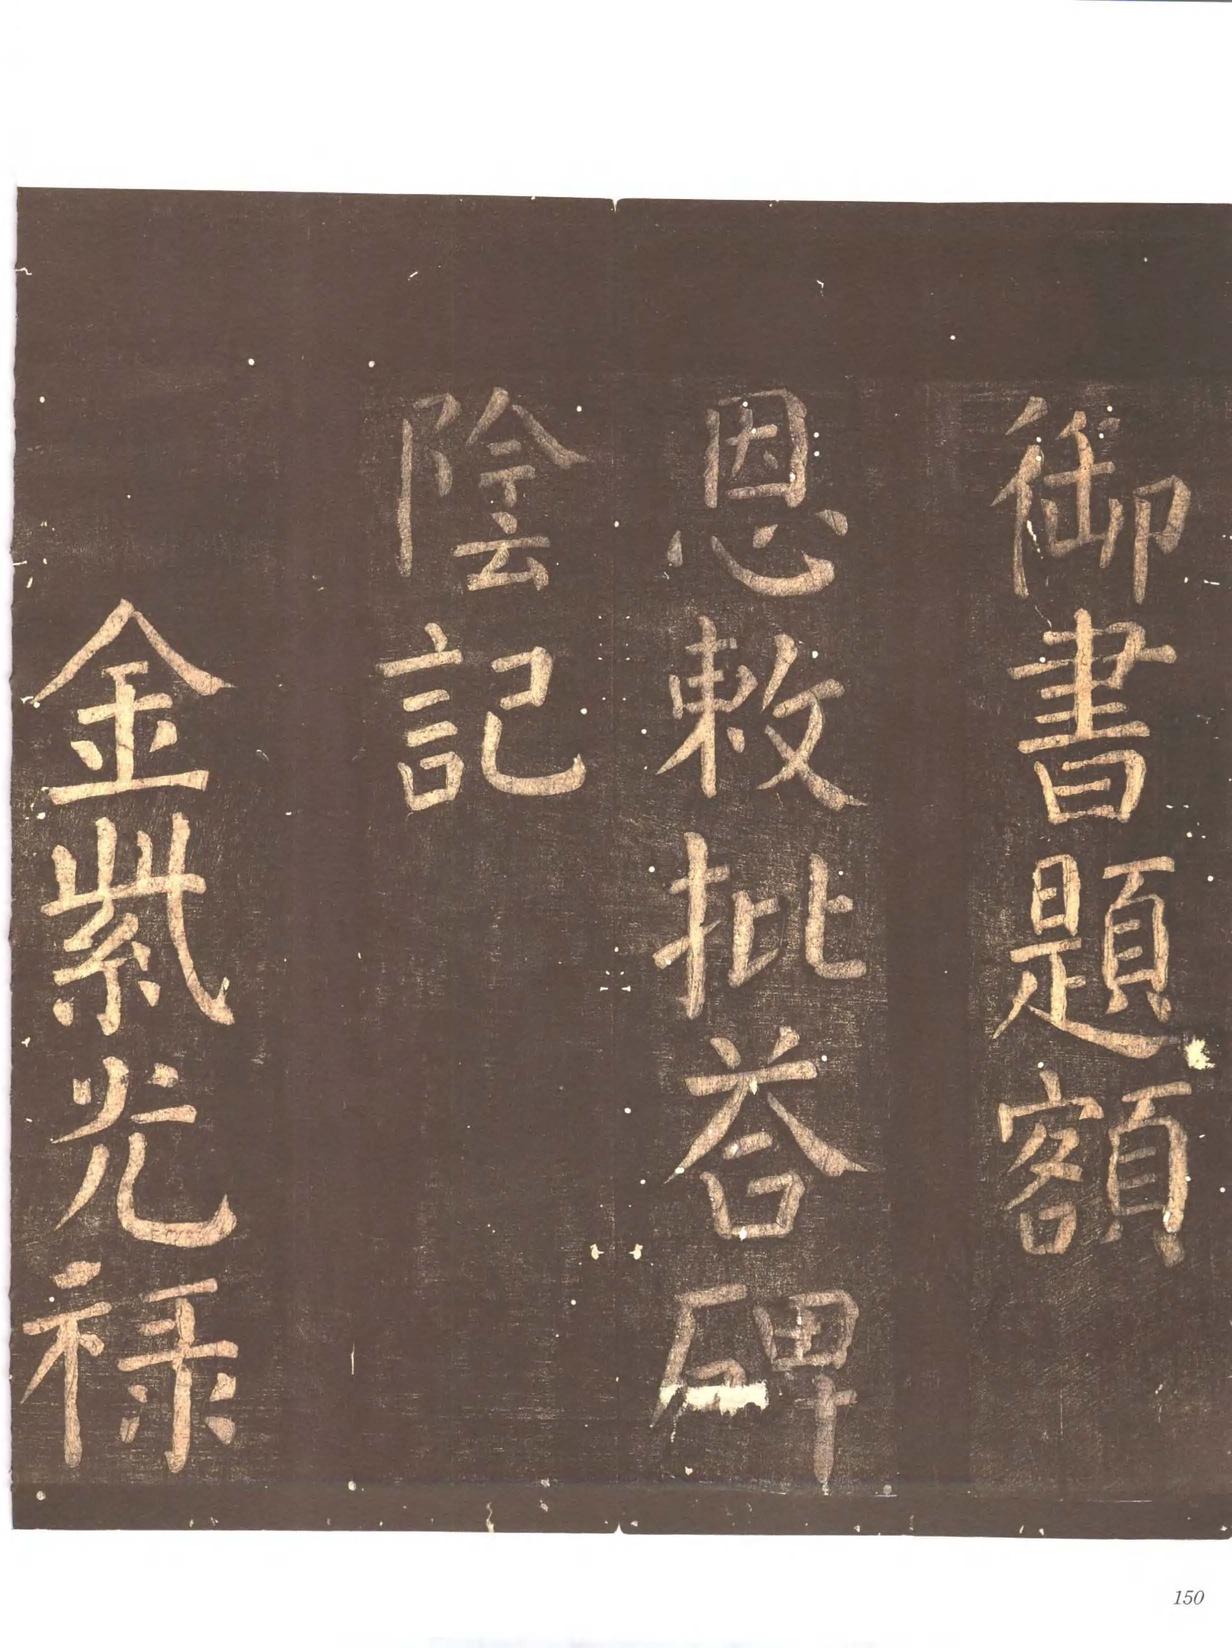 御書題額
恩敕批荅碑
陰記
金紫光禄
150